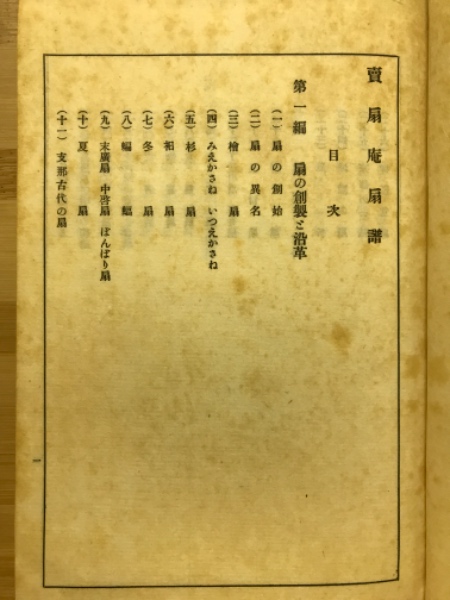 賣扇庵扇譜
目次
第一編 扇の創製と沿革
(一) 扇の創始
(二) 扇の異名
(三) 檜扇
(四) みえかさね いつえかさね
(五) 杉扇
(六) 衵扇
(七) 冬扇
(八) 蝙蝠
(九) 末廣扇 中啓扇 ぼんぼり扇
(十) 夏扇
(十一) 支那古代の扇
一